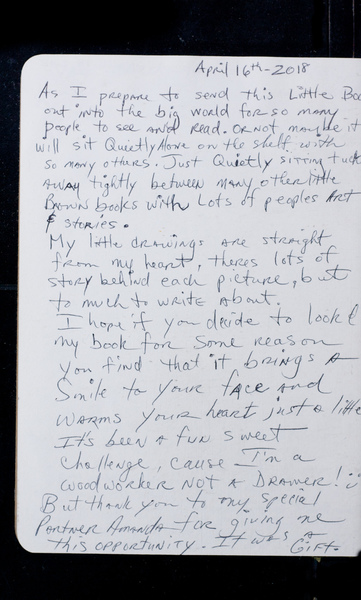 April 16th - 2018
As I prepare to send this Little Boo
out into the big world for so many
people to see and read. Or not maybe it
will sit Quietly Alone on the shelf with
so many others. Just Quietly sitting tuck
away tightly between many other little
Brown books with Lots of peoples Art
& stories.
My little drawings are straight
from my heart, theres lots of
story behind each picture, but
to much to write about.
I hope if you decide to look @
my book for some reason
you find that it brings a
Smile to your face and
warms your heart just a little
It's been a fun sweet
challenge, cause I'm a
woodworker NOT A DRAWER! :)
But thank you to my special
Partner Amanda for giving me
this opportunity. It was a
Gift.